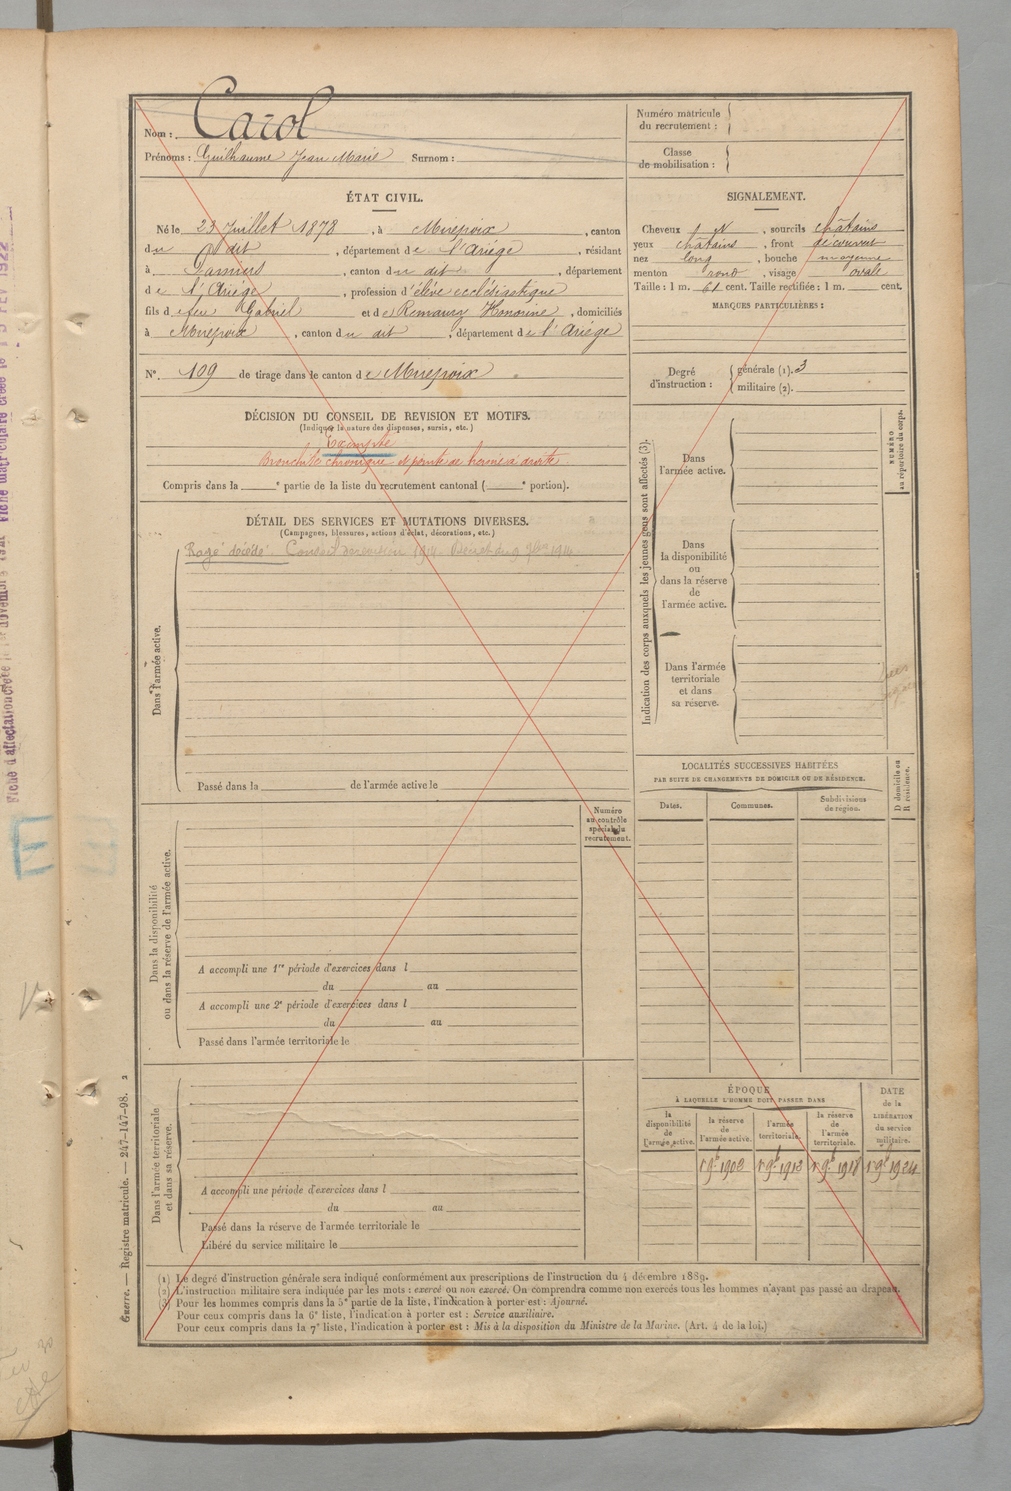 Nom : Carol
Prénoms : Guilhaume Jean Marie Surnom :
Numéro matricule
du recrutement :
Classe
de mobilisation :
ÉTAT CIVIL.
Né le 23 Juillet 1878, à Mirepoix, canton
du dit, département de l'Ariège, résidant
à Pamiers, canton du dit, département
de l'Ariège, profession d'élève ecclésiastique
fils de feu Gabriel et de Remaury Honorine, domiciliés
à Mirepoix, canton du dit, département de l'Ariège
N° 109 de tirage dans le canton de Mirepoix
SIGNALEMENT.
Cheveux N, sourcils châtains
yeux châtains, front découvert
nez long, bouche moyenne
menton rond, visage ovale
Taille : 1 m. 61 cent. Taille rectifiée : 1 m. cent.
MARQUES PARTICULIÈRES :
Degré
d'instruction :
générale (1). 3
militaire (2).
DÉCISION DU CONSEIL DE REVISION ET MOTIFS.
(Indiquer la nature des dispenses, sursis, etc.)
Exempté
Bronchite chronique et pointe de hernie à droite
Compris dans la e partie de la liste du recrutement cantonal ( e portion).
DÉTAIL DES SERVICES ET MUTATIONS DIVERSES.
(Campagnes, blessures, actions d'éclat, décorations, etc.)
Rayé décédé. Conseil de revision 1914
Dans l'armée active.
Passé dans la de l'armée active le
Indication des corps auxquels les jeunes gens sont affectés (3).
Dans
l'armée active.
Dans
la disponibilité
ou
dans la réserve
de
l'armée active.
Dans l'armée
territoriale
et dans
sa réserve.
NUMÉRO
au répertoire du corps.
LOCALITÉS SUCCESSIVES HABITÉES
PAR SUITE DE CHANGEMENTS DE DOMICILE OU DE RÉSIDENCE.
Dates.
Communes.
Subdivisions
de région.
D domicile ou
R résidence.
Numéro
au contrôle
spécial du
recrutement.
Dans la disponibilité
ou dans la réserve de l'armée active.
A accompli une 1re période d'exercices dans l
du au
A accompli une 2e période d'exercices dans l
du au
Passé dans l'armée territoriale le
Dans l'armée territoriale
et dans sa réserve.
A accompli une période d'exercices dans l
du au
Passé dans la réserve de l'armée territoriale le
Libéré du service militaire le
ÉPOQUE
À LAQUELLE L'HOMME DOIT PASSER DANS
la
disponibilité
de
l'armée active.
la réserve
de
l'armée active.
l'armée
territoriale.
la réserve
de
l'armée
territoriale.
DATE
de la
LIBÉRATION
du service
militaire.
1 9b 1902 1 9b 1912 1 9b 1918 1 9b 1924
(1) Le degré d'instruction générale sera indiqué conformément aux prescriptions de l'instruction du 4 décembre 1889.
(2) L'instruction militaire sera indiquée par les mots : exercé ou non exercé. On comprendra comme non exercés tous les hommes n'ayant pas passé au drapeau.
(3) Pour les hommes compris dans la 5e partie de la liste, l'indication à porter est : Ajourné.
Pour ceux compris dans la 6e liste, l'indication à porter est : Service auxiliaire.
Pour ceux compris dans la 7e liste, l'indication à porter est : Mis à la disposition du Ministre de la Marine. (Art. 4 de la loi.)
Guerre. — Registre matricule. — 247-147-98. 2